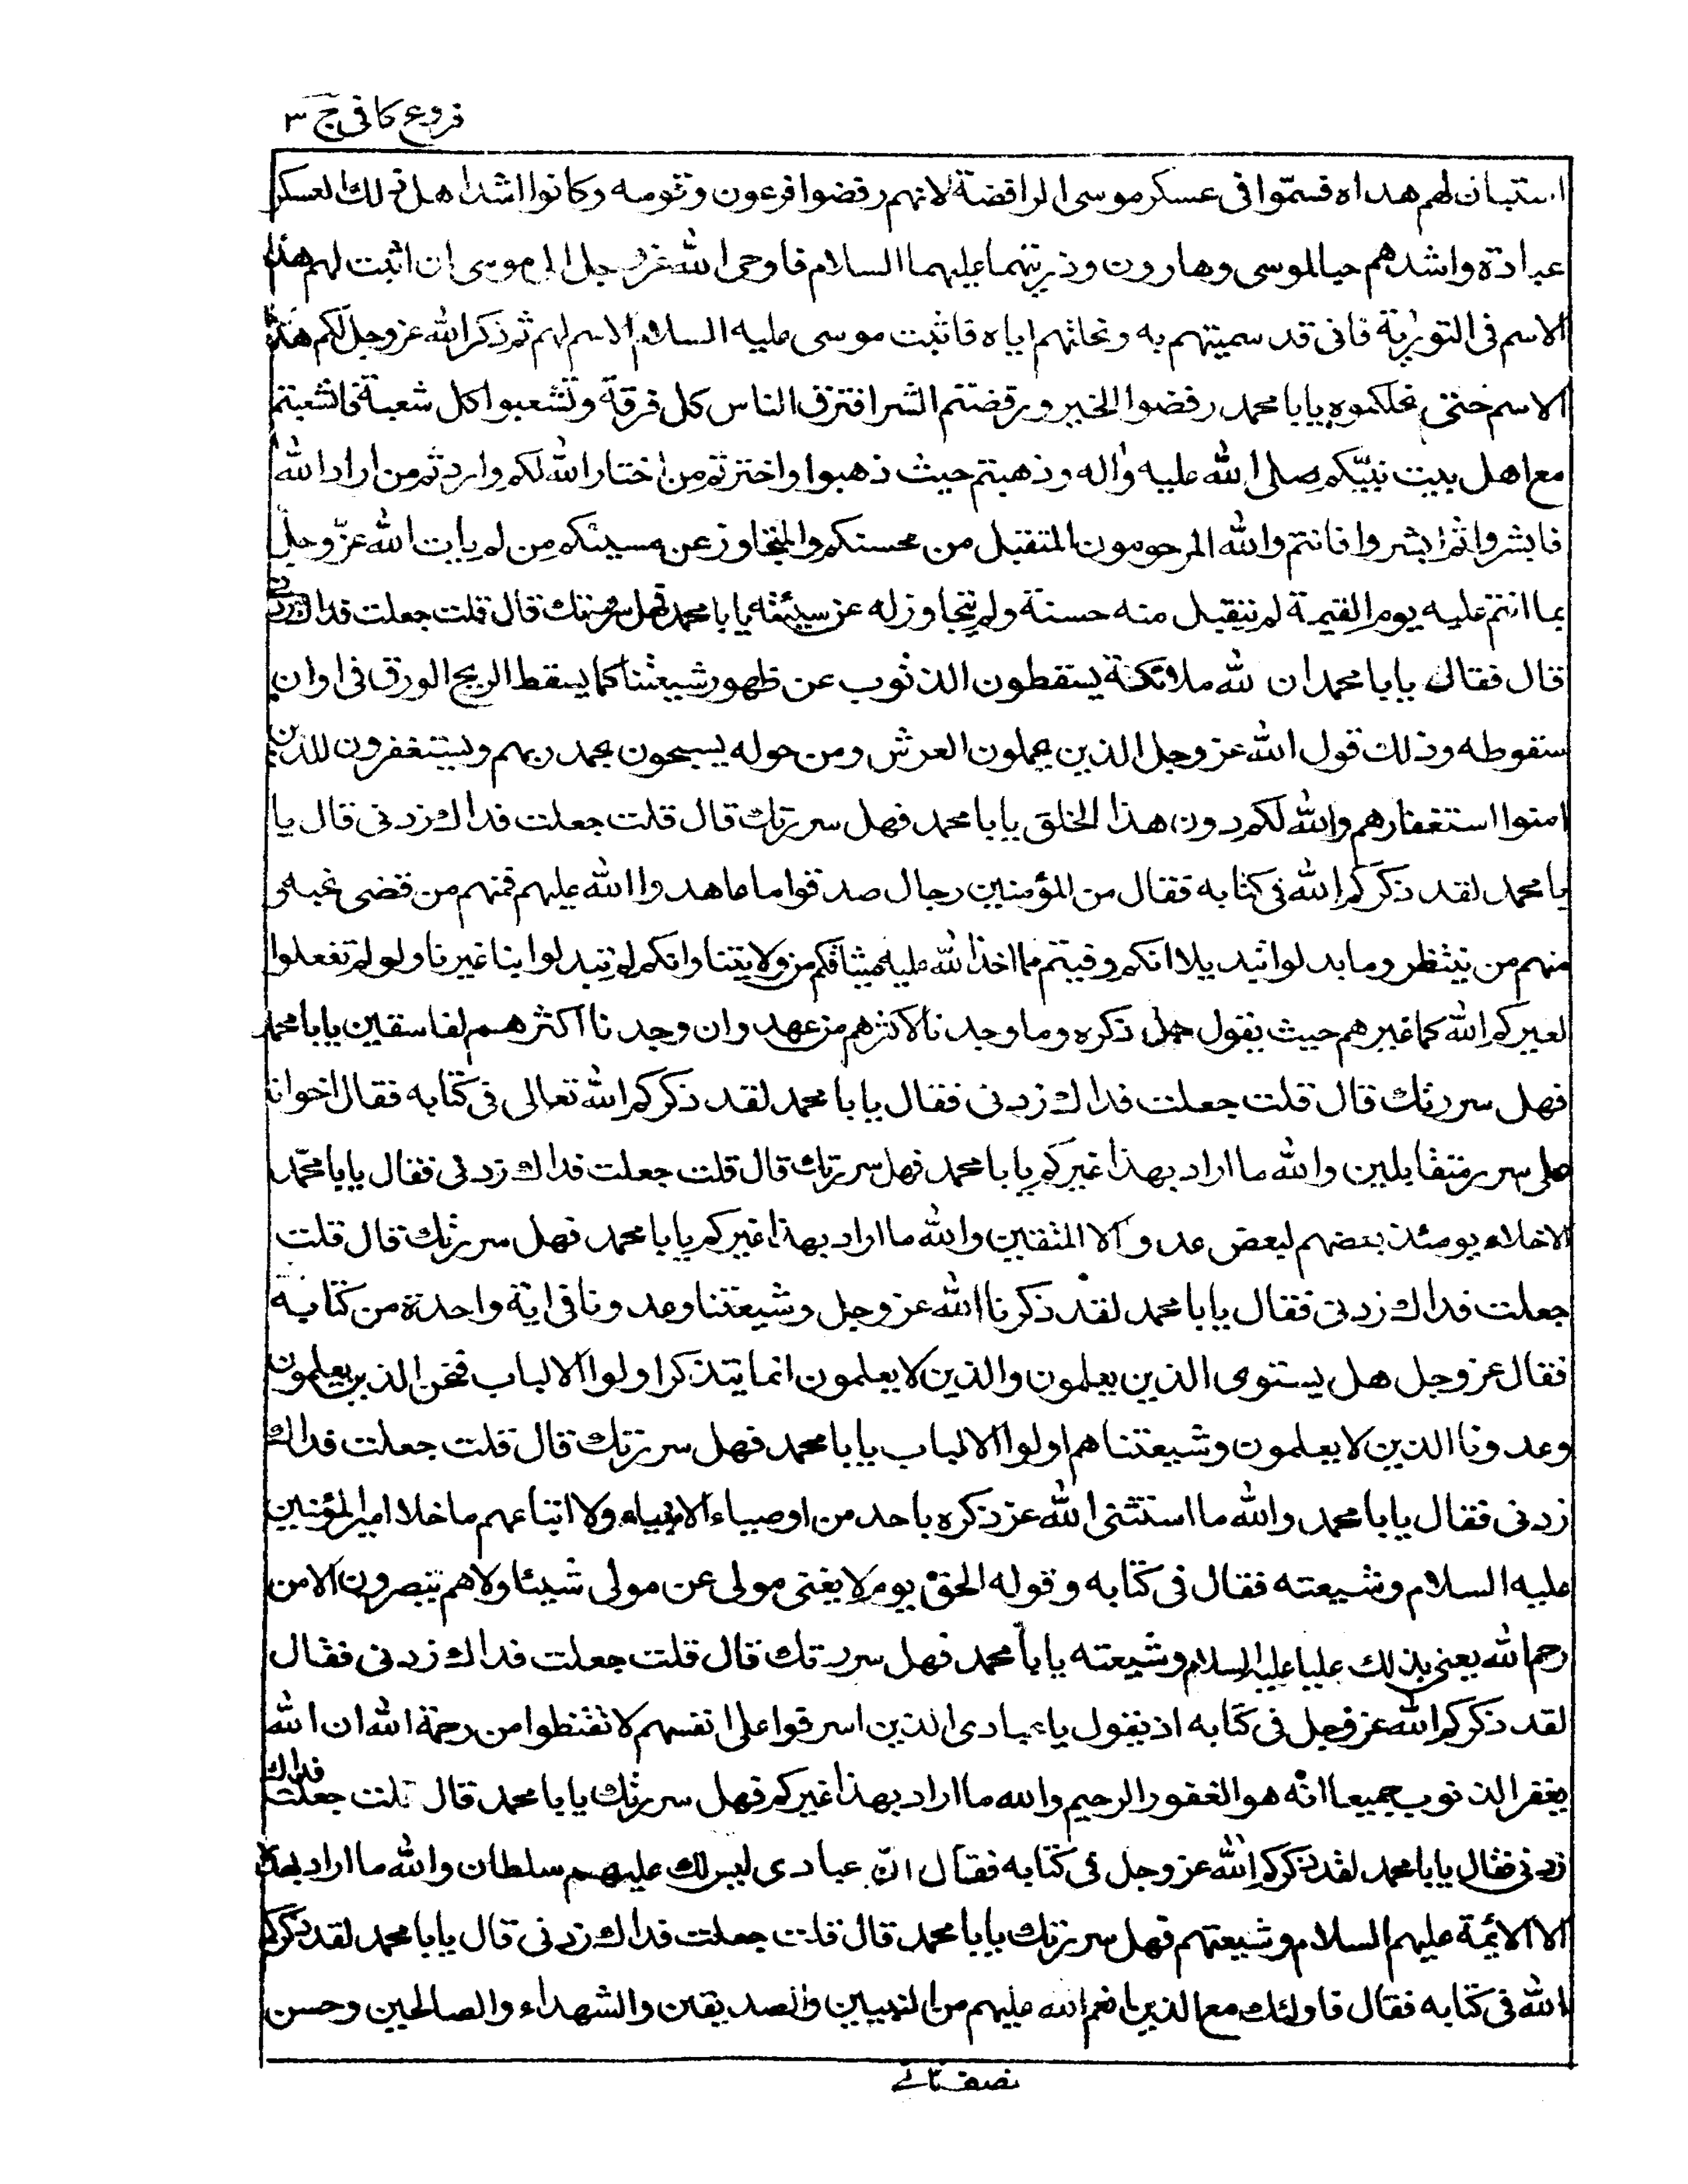 فروع كافى ج ٣
استبان لهم هداه فسمّوا فى عسكر موسى الرافضة لانهم رفضوا فرعون وقومه وكانوا اشد اهل ذلك العسكر
عبادة واشدهم حبا لموسى وهارون وذريتهما عليهما السلام فاوحى الله عز وجل الى موسى ان اثبت لهم هذا
الاسم فى التورية فانى قد سميتهم به ونحلتهم اياه فاثبت موسى عليه السلام الاسم لهم ثم ذكر الله عز وجل لكم هذا
الاسم حتى نحلكموه يابا محمد رفضوا الخير ورفضتم الشر افترق الناس كل فرقة وتشعبوا كل شعبة فانشعبتم
مع اهل بيت نبيّكم صلى الله عليه واله وذهبتم حيث ذهبوا واخترتم من اختار الله لكم واردتم من اراد الله
فابشروا ثم ابشروا فانتم والله المرحومون المتقبل من محسنكم والمتجاوز عن مسيئكم من لم يات الله عزّ وجلّ
بما انتم عليه يوم القيمة لم يتقبل منه حسنة ولم يتجاوز له عن سيئة يابا محمد فهل سررتك قال قلت جعلت فداك زدنى
قال فقال يابا محمد ان لله ملائكة يسقطون الذنوب عن ظهور شيعتنا كما يسقط الريح الورق فى اوان
سقوطه وذلك قول الله عز وجل الذين يحملون العرش ومن حوله يسبحون بحمد ربهم ويستغفرون للذين
امنوا استغفارهم والله لكم دون هذا الخلق يابا محمد فهل سررتك قال قلت جعلت فداك زدنى قال يا
با محمد لقد ذكركم الله فى كتابه فقال من المؤمنين رجال صدقوا ما عاهدوا الله عليهم فمنهم من قضى نحبه و
منهم من ينتظر وما بدلوا تبديلا انكم وفيتم بما اخذ الله عليه ميثاقكم من ولايتنا وانكم لم تبدلوا بنا غيرنا ولو لم تفعلوا
لعيركم الله كما عيرهم حيث يقول جل ذكره وما وجدنا لاكثرهم من عهد وان وجدنا اكثرهم لفاسقين يابا محمد
فهل سررتك قال قلت جعلت فداك زدنى فقال يابا محمد لقد ذكركم الله تعالى فى كتابه فقال اخوانا
على سرر متقابلين والله ما اراد بهذا غيركم يابا محمد فهل سررتك قال قلت جعلت فداك زدنى فقال يابا محمّد
الاخلاء يومئذ بعضهم لبعض عدو الا المتقين والله ما اراد بهذا غيركم يابا محمد فهل سررتك قال قلت
جعلت فداك زدنى فقال يابا محمد لقد ذكرنا الله عز وجل وشيعتنا وعدونا فى اية واحدة من كتابه
فقال عز وجل هل يستوى الذين يعلمون والذين لا يعلمون انما يتذكر اولوا الالباب فنحن الذين يعلمون
وعدونا الذين لا يعلمون وشيعتنا هم اولوا الالباب يابا محمد فهل سررتك قال قلت جعلت فداك
زدنى فقال يابا محمد والله ما استثنى الله عز ذكره باحد من اوصياء الانبياء ولا اتباعهم ما خلا امير المؤمنين
عليه السلام وشيعته فقال فى كتابه وقوله الحق يوم لا يغنى مولى عن مولى شيئا ولا هم ينصرون الا من
رحم الله يعنى بذلك عليا عليه السلام وشيعته يابا محمد فهل سررتك قال قلت جعلت فداك زدنى فقال
لقد ذكركم الله عز وجل فى كتابه اذ يقول يا عبادى الذين اسرفوا على انفسهم لا تقنطوا من رحمة الله ان الله
يغفر الذنوب جميعا انه هو الغفور الرحيم والله ما اراد بهذا غيركم فهل سررتك يابا محمد قال قلت جعلت فداك
زدنى فقال يابا محمد لقد ذكركم الله عز وجل فى كتابه فقال انّ عبادى ليس لك عليهم سلطان والله ما اراد بهذا
الا الائمة عليهم السلام وشيعتهم فهل سررتك يابا محمد قال قلت جعلت فداك زدنى قال يابا محمد لقد ذكركم
الله فى كتابه فقال فاولئك مع الذين انعم الله عليهم من النبيين والصديقين والشهداء والصالحين وحسن
نصف ثانى